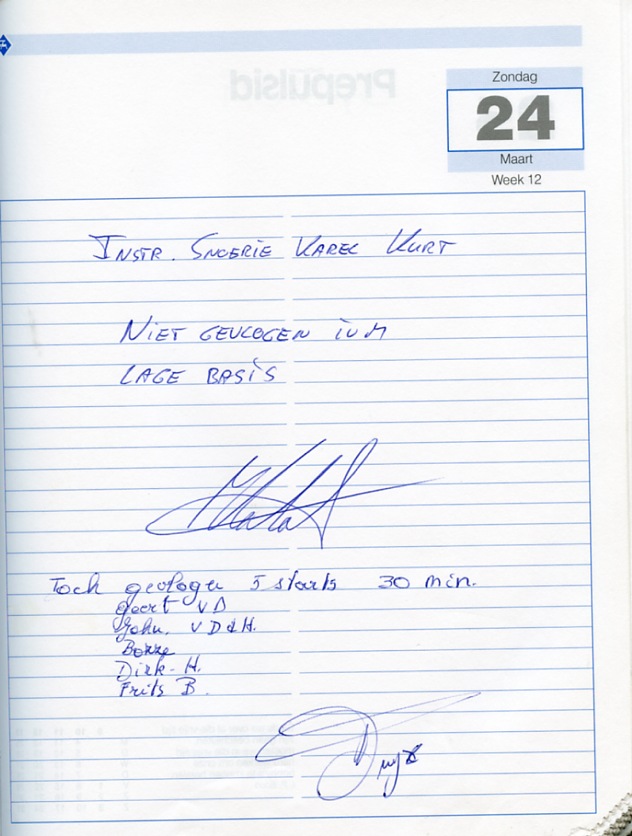 Prepulsid
Zondag
24
Maart
Week 12
INSTR. SNOERIE KAREL KURT
NIET GEVLOGEN IVM
LAGE BASIS
Toch gevlogen 5 starts 30 min.
Geert VD
John. VDH.
Dirk-H.
Frits B.